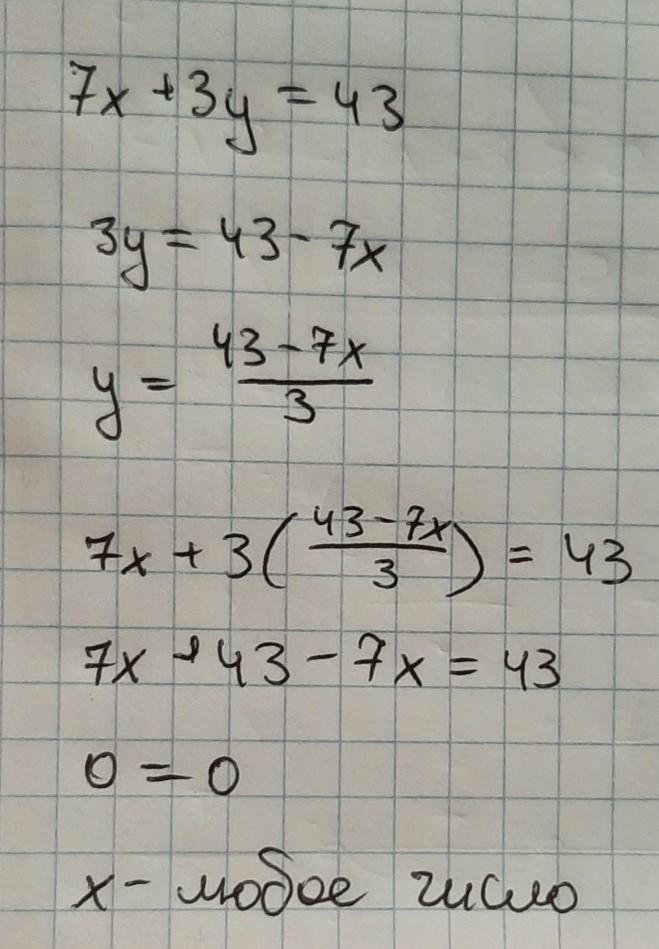 7x + 3y = 43
3y = 43 - 7x
y = (43 - 7x)/3
7x + 3((43 - 7x)/3) = 43
7x + 43 - 7x = 43
0 = 0
x - любое число